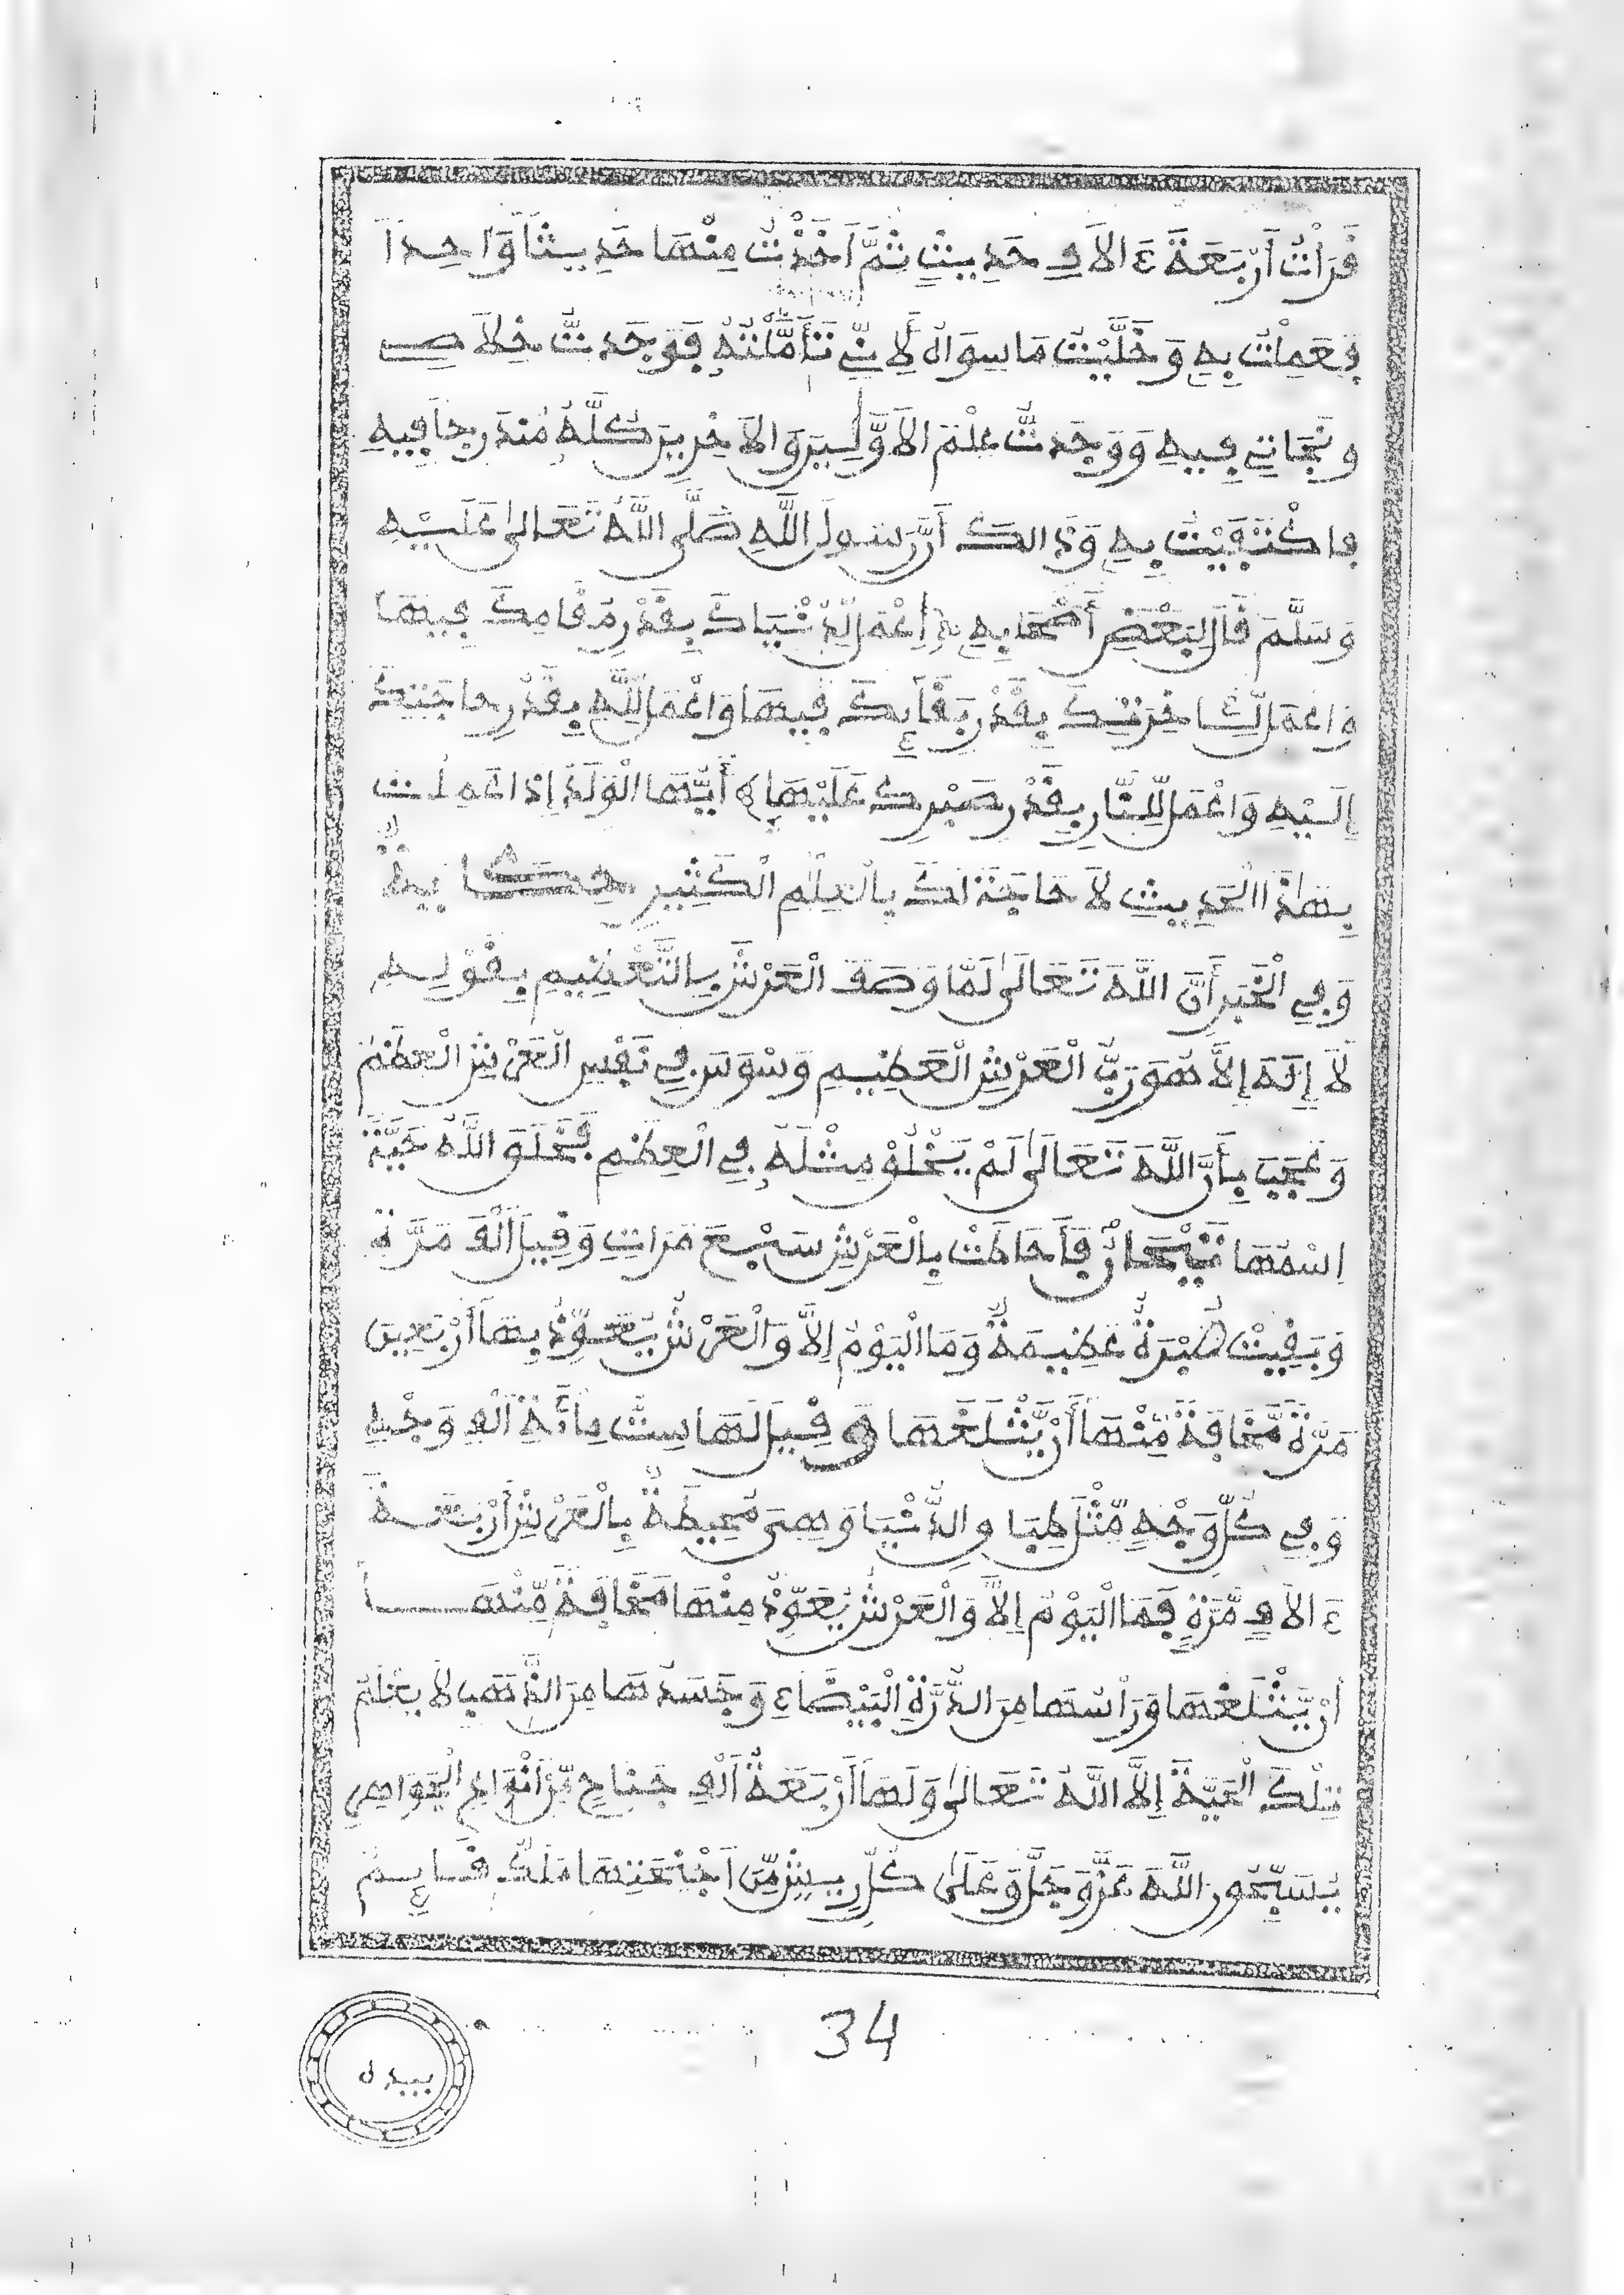 قَرَأْتُ أَرْبَعَةَ ءَالَافِ حَدِيثٍ ثُمَّ أَخَذْتُ مِنْهَا حَدِيثًا وَاحِدًا
فَعَمِلْتُ بِهِ وَخَلَّيْتُ مَا سِوَاهُ لِأَنِّي تَأَمَّلْتُهُ فَوَجَدتُّ خَلَاصِي
وَنَجَاتِي فِيهِ وَوَجَدتُّ عِلْمَ الْأَوَّلِينَ وَالْآخِرِينَ كُلَّهُ مُنْدَرِجًا فِيهِ
فَاكْتَفَيْتُ بِهِ وَذَالِكَ أَنَّ رَسُولَ اللَّهِ صَلَّى اللَّهُ تَعَالَىٰ عَلَيْهِ
وَسَلَّمَ قَالَ لِبَعْضِ أَصْحَابِهِ إِعْمَلْ لِدُنْيَاكَ بِقَدْرِ مَقَامِكَ فِيهَا
وَاعْمَلْ لِآخِرَتِكَ بِقَدْرِ بَقَائِكَ فِيهَا وَاعْمَلْ لِلَّهِ بِقَدْرِ حَاجَتِكَ
إِلَيْهِ وَاعْمَلْ لِلنَّارِ بِقَدْرِ صَبْرِكَ عَلَيْهَا أَيُّهَا الْوَلَدُ إِذَا عَمِلْتَ
بِهَٰذَا الْحَدِيثِ لَا حَاجَةَ لَكَ بِالْعِلْمِ الْكَثِيرِ حِكَايَةٌ
وَفِي الْخَبَرِ أَنَّ اللَّهَ تَعَالَىٰ لَمَّا وَصَفَ الْعَرْشَ بِالتَّعْظِيمِ بِقَوْلِهِ
لَا إِلَٰهَ إِلَّا هُوَ رَبُّ الْعَرْشِ الْعَظِيمِ وَسْوَسَ فِي نَفْسِ الْعَرْشِ الْعِظَمُ
وَعَجِبَ بِأَنَّ اللَّهَ تَعَالَىٰ لَمْ يَخْلُقْ مِثْلَهُ فِي الْعِظَمِ فَخَلَقَ اللَّهُ حَيَّةً
اِسْمُهَا فَأَحَاطَتْ بِالْعَرْشِ سَبْعَ مَرَّاتٍ وَقِيلَ أَلْفَ مَرَّةٍ
وَبَقِيَتْ كَبِيرَةً عَظِيمَةً وَمَا الْيَوْمُ إِلَّا وَالْعَرْشُ يَتَعَوَّذُ بِهَا أَرْبَعِينَ
مَرَّةً مَّخَافَةً مِّنْهَا أَنْ يَّبْلَعَهَا قِيلَ لَهَا سِتُّ مِائَةِ أَلْفِ وَجْهٍ
وَفِي كُلِّ وَجْهٍ مِّثْلُ طِبَاقِ الدُّنْيَا وَهِيَ مُحِيطَةٌ بِالْعَرْشِ أَرْبَعَةَ
ءَالَافِ مَرَّةٍ فَمَا الْيَوْمُ إِلَّا وَالْعَرْشُ يَتَعَوَّذُ مِنْهَا مَخَافَةً مِّنْهَا
أَنْ يَّبْلَعَهَا وَرَأْسُهَا مِنَ الدُّرَّةِ الْبَيْضَاءِ وَجَسَدُهَا مِنَ الذَّهَبِ لَا يَعْلَمُ
تِلْكَ الْحَيَّةَ إِلَّا اللَّهُ تَعَالَىٰ وَلَهَا أَرْبَعَةُ أَلْفِ جَنَاحٍ مِّنْ أَنْوَاعِ الْجَوَاهِرِ
يُسَبِّحُونَ اللَّهَ عَزَّ وَجَلَّ وَعَلَىٰ كُلِّ رِيشٍ مِّنْ أَجْنِحَتِهَا مَلَكٌ قَائِمٌ
34